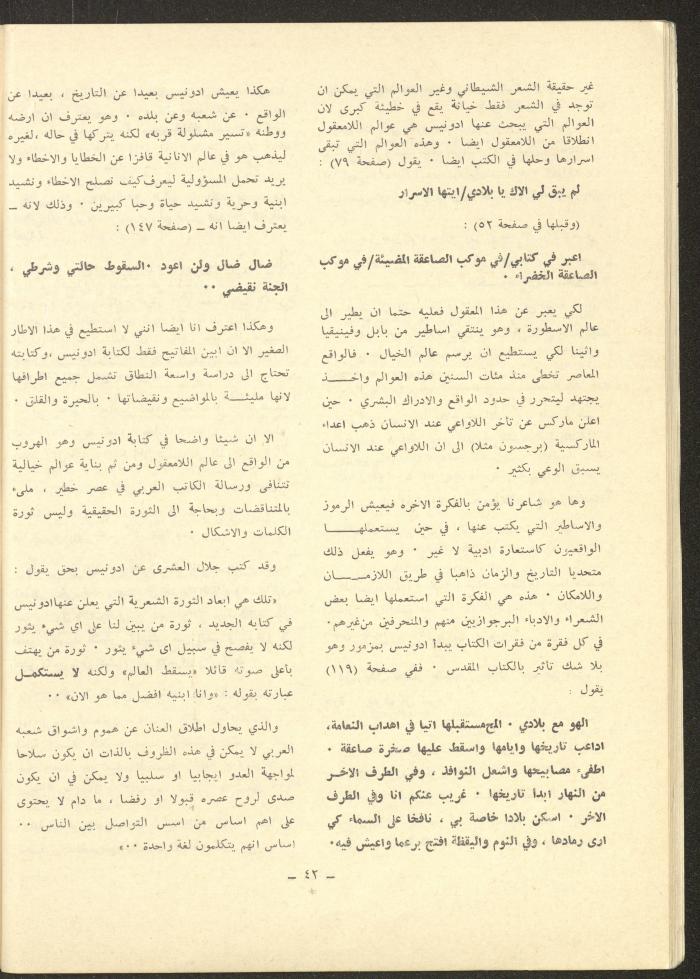 غير حقيقة الشعر الشيطاني وغير العوالم التي يمكن ان
توجد في الشعر فقط خيانة يقع في خطيئة كبرى لان
العوالم التي يبحث عنها ادونيس هي عوالم اللامعقول
انطلاقا من اللامعقول ايضا ٠ وهذه العوالم التي تبقى
اسرارها وحلها في الكتب ايضا ٠ يقول (صفحة ٧٩) :
لم يبق لي الاك يا بلادي/ايتها الاسرار
(وقبلها في صفحة ٥٢) :
اعبر في كتابي/في موكب الصاعقة المضيئة/في موكب
الصاعقة الخضراء ٠
لكي يعبر عن هذا المعقول فعليه حتما ان يطير الى
عالم الاسطورة ، وهو ينتقي اساطير من بابل وفينيقيا
واثينا لكي يستطيع ان يرسم عالم الخيال ٠ فالواقع
المعاصر تخطى منذ مئات السنين هذه العوالم واخــذ
يجتهد ليتحرر في حدود الواقع والادراك البشري ٠ حين
اعلن ماركس عن تأخر اللاواعي عند الانسان ذهب اعداء
الماركسية (برجسون مثلا) الى ان اللاواعي عند الانسان
يسبق الوعي بكثير ٠
وها هو شاعرنا يؤمن بالفكرة الاخره فيعيش الرموز
والاساطير التي يكتب عنها ، في حين يستعملهــا
الواقعيون كاستعارة ادبية لا غير ٠ وهو يفعل ذلك
متحديا التاريخ والزمان ذاهبا في طريق اللازمــان
واللامكان ٠ هذه هي الفكرة التي استعملها ايضا بعض
الشعراء والادباء البرجوازيين منهم والمنحرفين من غيرهم٠
في كل فقرة من فقرات الكتاب يبدأ ادونيس بمزمور وهو
بلا شك تاثير بالكتاب المقدس ٠ ففي صفحة (١١٩)
يقول :
الهو مع بلادي ٠ المح مستقبلها اتيا في اهداب النعامة،
اداعب تاريخها وايامها واسقط عليها صخرة صاعقة ٠
اطفىء مصابيحها واشعل النوافذ ، وفي الطرف الاخر
من النهار ابدا تاريخها ٠ غريب عنكم انا وفي الطرف
الاخر ٠ اسكن بلادا خاصة بي ، نافخا على السماء كي
ارى رمادها ، وفي النوم واليقظة افتح برعما واعيش فيه٠
هكذا يعيش ادونيس بعيدا عن التاريخ ، بعيدا عن
الواقع ٠ عن شعبه وعن بلده ٠ وهو يعترف ان ارضه
ووطنه «تسير مشلولة قربه» لكنه يتركها في حاله ،لغيره
ليذهب هو في عالم الانانية قافزا عن الخطايا والاخطاء ولا
يريد تحمل المسؤولية ليعرف كيف نصلح الاخطاء ونشيد
ابنية وحرية ونشيد حياة وحبا كبيرين ٠ وذلك لانه ــ
يعترف ايضا انه ــ (صفحة ١٤٧) :
ضال ضال ولن اعود ٠السقوط حالتي وشرطي ،
الجنة نقيضي ٠٠
وهكذا اعترف انا ايضا انني لا استطيع في هذا الاطار
الصغير الا ان ابين المفاتيح فقط لكتابة ادونيس ،وكتابته
تحتاج الى دراسة واسعة النطاق تشمل جميع اطرافها
لانها مليئــة بالمواضيع ونقيضاتها ٠ بالحيرة والقلق ٠
الا ان شيئا واضحا في كتابة ادونيس وهو الهروب
من الواقع الى عالم اللامعقول ومن ثم بناية عوالم خيالية
تتنافى ورسالة الكاتب العربي في عصر خطير ، ملىء
بالمتناقضات وبحاجة الى الثورة الحقيقية وليس ثورة
الكلمات والاشكال ٠
وقد كتب جلال العشرى عن ادونيس بحق يقول :
«تلك هي ابعاد الثورة الشعرية التي يعلن عنها ادونيس
في كتابه الجديد ، ثورة من يبين لنا على اي شيء يثور
لكنه لا يفصح في سبيل اى شيء يثور ٠ ثورة من يهتف
بأعلى صوته قائلا «يسقط العالم» ولكنه لا يستكمل
عبارته بقوله : «وانا ابنيه افضل مما هو الان» ٠٠
والذي يحاول اطلاق العنان عن هموم واشواق شعبه
العربي لا يمكن في هذه الظروف بالذات ان يكون سلاحا
لمواجهة العدو ايجابيا او سلبيا ولا يمكن في ان يكون
صدى لروح عصره قبولا او رفضا ، ما دام لا يحتوى
على اهم اساس من اسس التواصل بين الناس ٠٠
اساس انهم يتكلمون لغة واحدة ٠٠»
ــ ٤٢ ــ